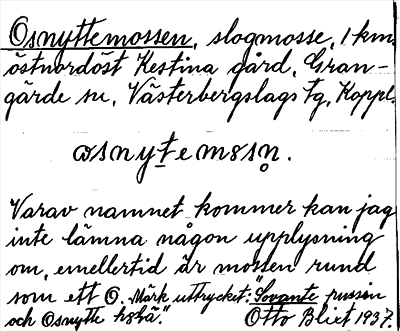 Osnyttemossen, slogmosse, 1 km.
östnordöst Kestina gård, Gran-
gärde sn, Västerbergslags tg, Koppl.
osnytemosn̥.
Varav namnet kommer kan jag
inte lämna någon upplysning
om, emellertid är mossen rund
som ett O. Märk uttrycket: "Sovante pussin
och Osnytte
Otto Blixt 1937.